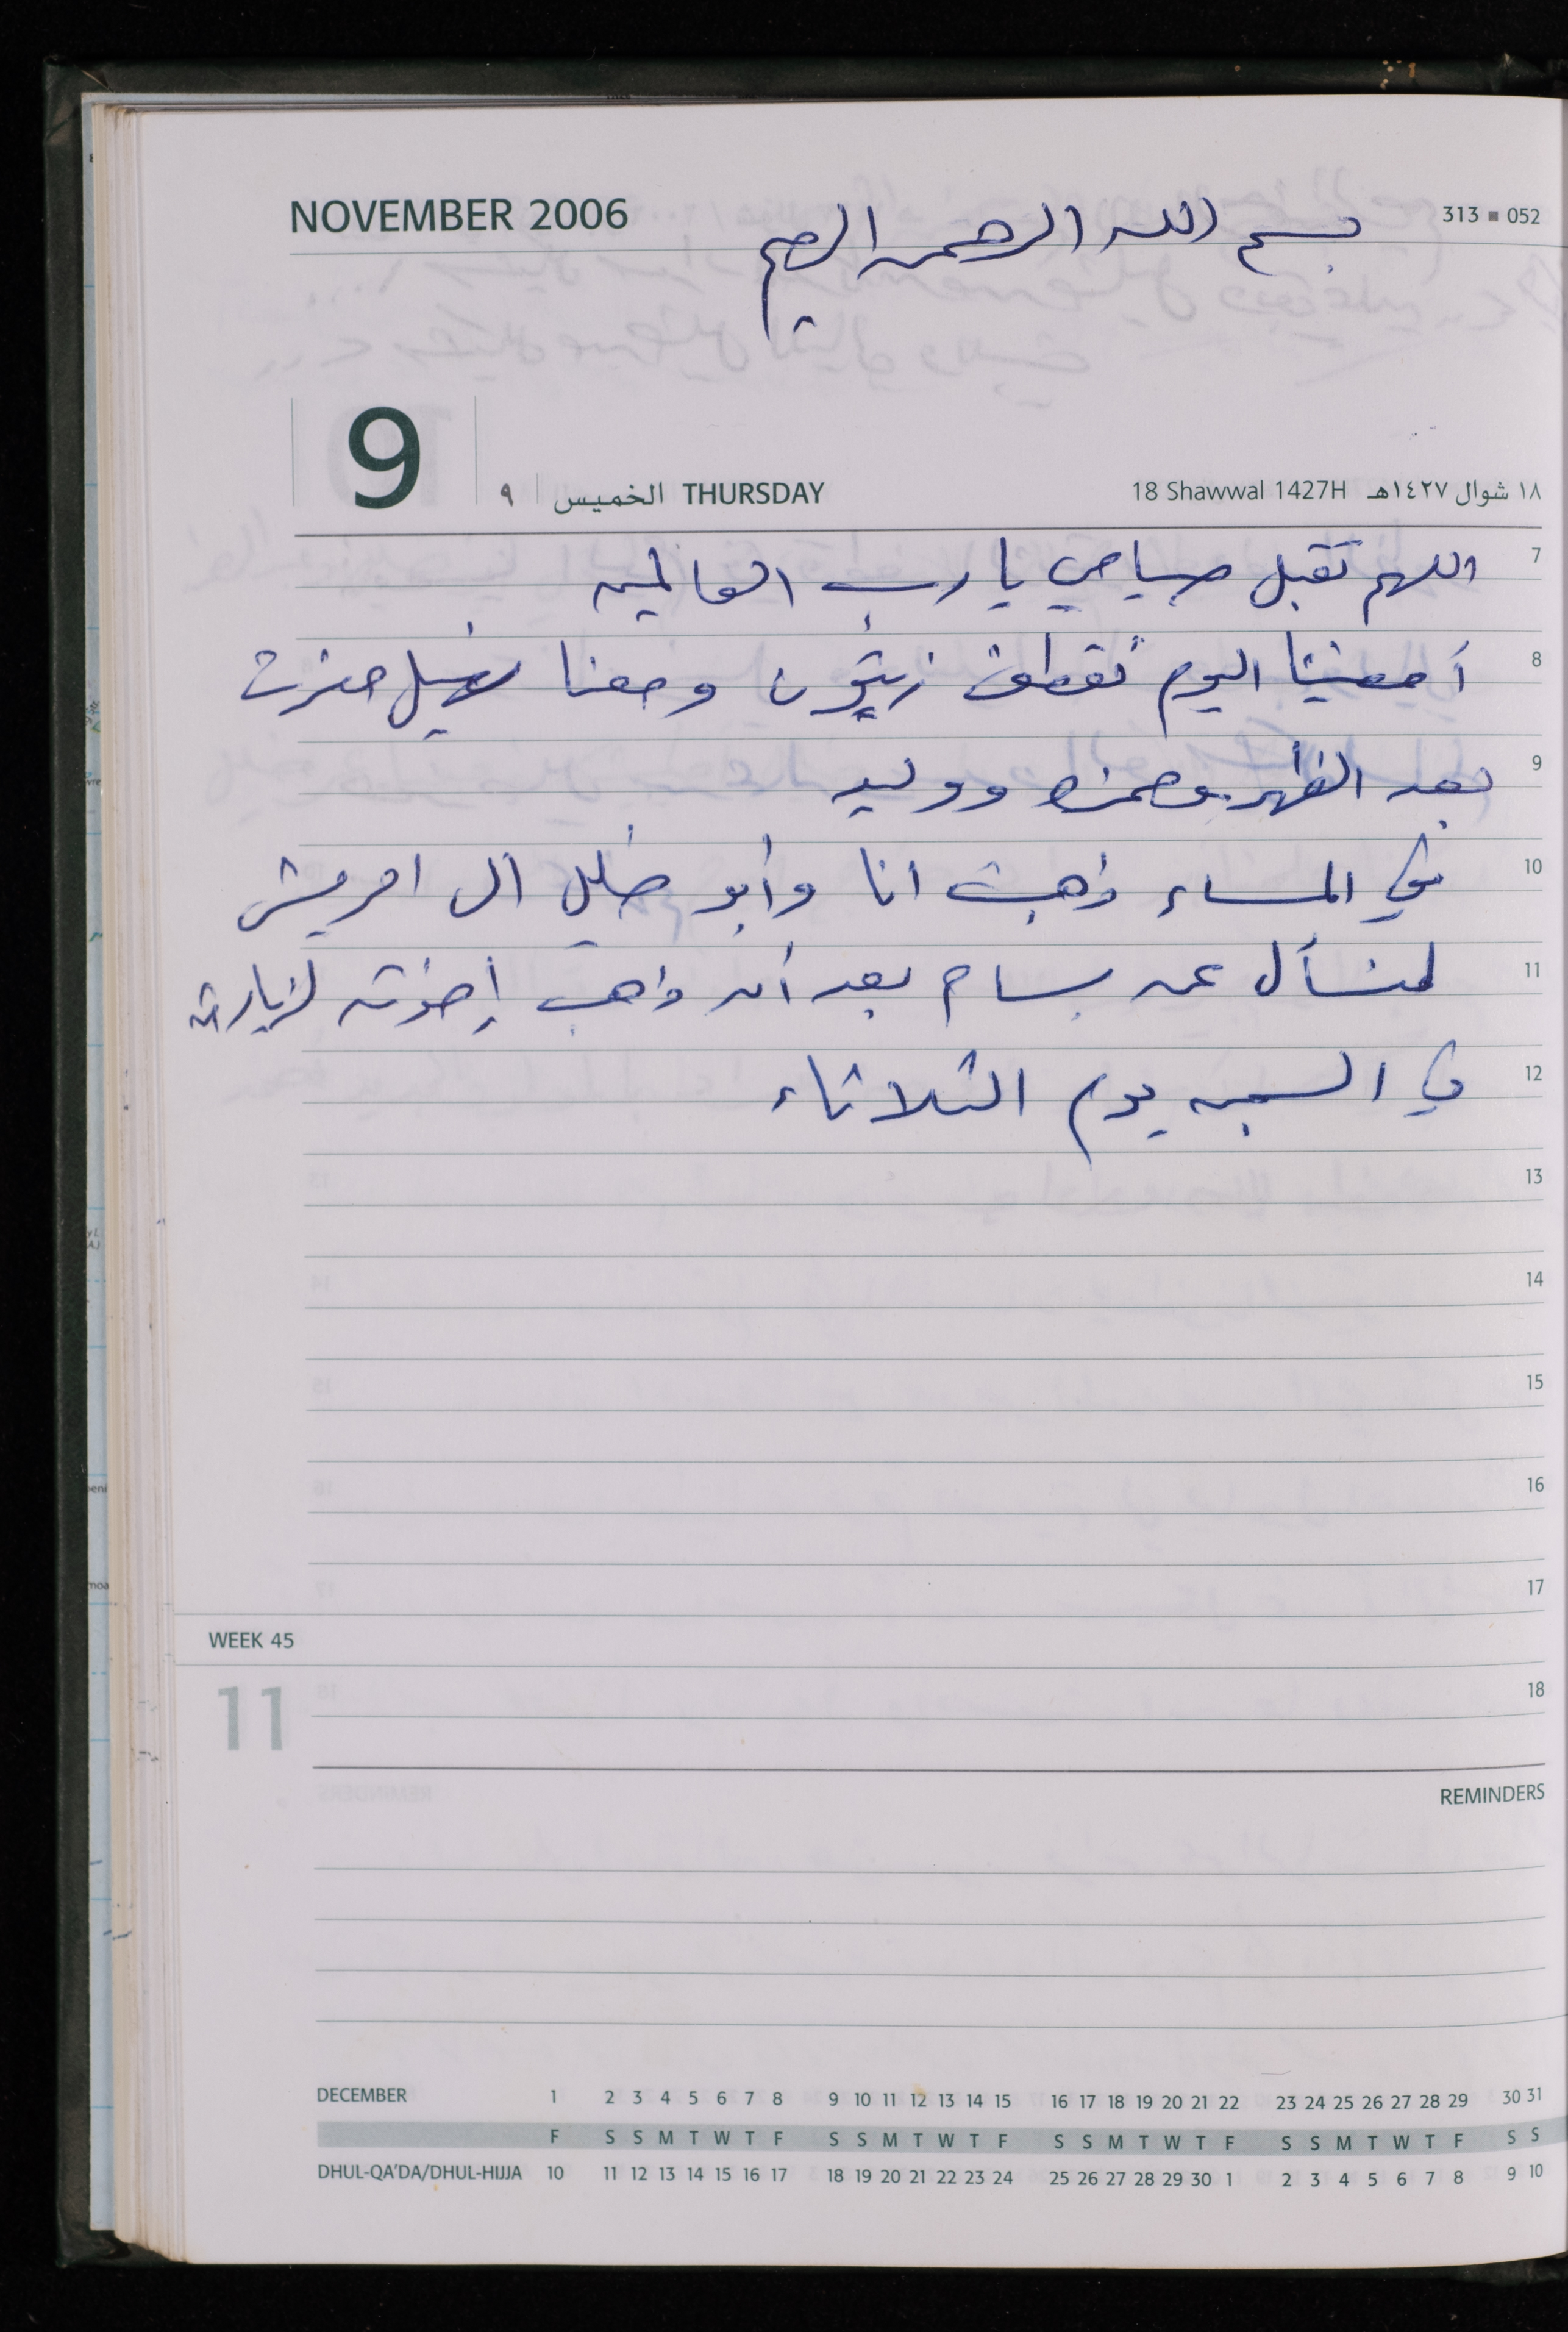 NOVEMBER 2006
بسم الله الرحمن الرحيم
313 ■ 052
9
٩ | الخميس THURSDAY
18 Shawwal 1427H ١٨ شوال ١٤٢٧هـ
7 اللهم تقبل صيامي يا رب العالمين
8 أمضينا اليوم نقطف زيتون ومعنا نبيل حضرت
9 بعد الظهر وحمزه ووليد
10 في المساء ذهبت انا وأبو خليل ال امريش
11 لنسأل عن بسام بعد أن ذهب إخوته لزيارته
12 في السجن يوم الثلاثاء
13
14
15
16
17
WEEK 45
18
11
REMINDERS
DECEMBER 1 2 3 4 5 6 7 8 9 10 11 12 13 14 15 16 17 18 19 20 21 22 23 24 25 26 27 28 29 30 31
F S S M T W T F S S M T W T F S S M T W T F S S M T W T F S S
DHUL-QA'DA/DHUL-HIJJA 10 11 12 13 14 15 16 17 18 19 20 21 22 23 24 25 26 27 28 29 30 1 2 3 4 5 6 7 8 9 10